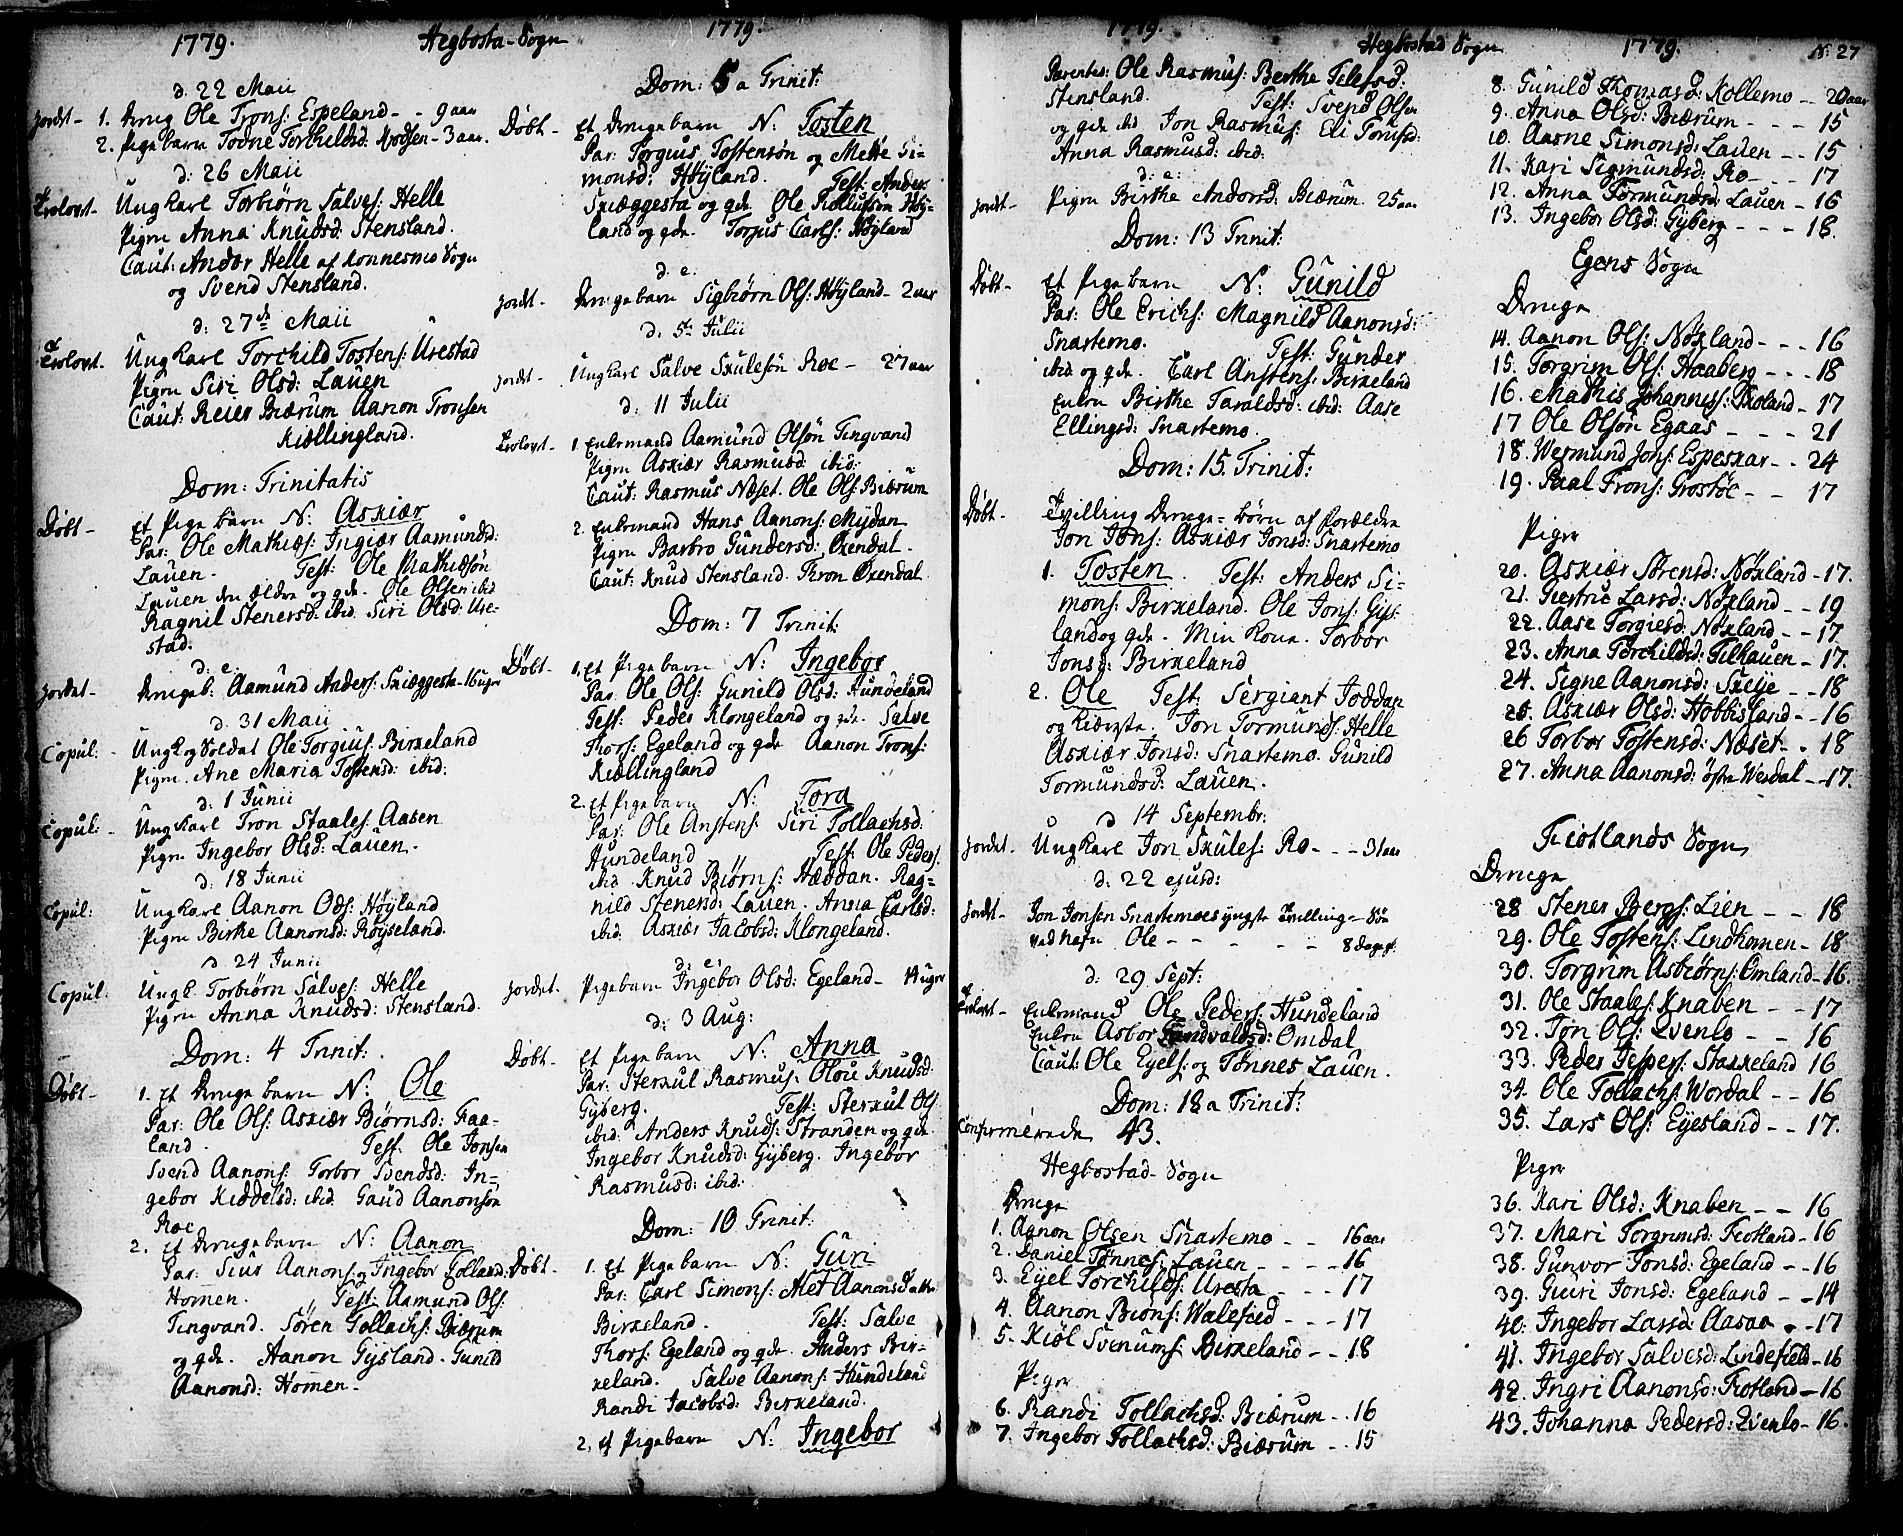 1779. Hegbosta-Sogn 1779.
d: 22 Maii
Jordet - 1. Dreng Ole Trons: Espeland - - 9 aar
2. Pigebarn Todne Torkildsd: - 3 aar.
d: 26 Maii
Trolovt. Ungkarl Torbiørn Salves: Helle
Pigen Anna Knudsd: Stensland.
Caut: Andor Helle af Konnesmo Sogn
og Svend Stensland.
d: 27de Maii
Trolovt. Ungkarl Torchild Tostens: Urestad
Pigen Siri Olsd: Lauen
Caut: Reier Biærum Aanon Tronsen
Kiellingland.
Dom: Trinitatis
Døbt - Et Pige barn N: Askiær
Par: Ole Mathies: Ingiær Aamundsd:
Lauen. Test: Ole Mathiesøn
Lauen den ældre og qde. Ole Olsen ibid
Ragnil Stenersd: ibid. Siri Olsd: Ure-
stad.
d: e.
Jordet - Drengeb: Aamund Anders: Skieggesta - 16 uger
d. 31 Maii
Copul: - Ungk og Soldat Ole Torgius: Birkeland
Pigen Ane Maria Tostensd: ibid:
d: 1 Junii
Copul: - Ungkarl Tron Staales: Aasen
Pigen Ingebor Olsd: Lauen.
d: 18 Junii
Copul: Ungkarl Aanon Ods: Høyland
Pigen Birte Aanonsd: Røyseland.
d 24 Junii
Copul: Ungk. Torbiørn Salves: Helle
Pigen Anna Knudsd: Stensland.
Dom: 4 Trinit:
Døbt - 1. Et Drenge barn N: Ole
Par: Ole Ols: Askiær Biørnsd: Faa-
land. Test: Ole Jonsen
Svend Aanons: Torbor Svendsd: In-
gebor Kiddelsd: ibid Gaud Aanonsøn
Roe
2. Et Drengebarn N: Aanon
Par: Siur Aanons: Ingebor Tollacsd:
Homen. Test: Aamund Ols:
Tingvand. Søren Tollachs: Biærum
og qde. Aanon Gysland. Gunild
Aanonsd: Homen -
Dom: 5 a Trinit:
Døbt - Et Drenge barn N: Tosten
Par: Torguis Tostensøn og Mette Si-
monsd: Høyland. Test: Anders
Skieggesta og qde. Ole Høy-
land og qde. Torjus Carls: Høyland
d: e.
Jordt - Drengebarn Sigbiørn Ols: Høyland - 2 uar
d: 5te Julii
Jordt - Ungkarl Salve Skulesøn Roe - 27 aar
d: 11 Julii
Trolovt - 1 Enkemand Aamund Olsøn Tingvand
Pigen Askiær Rasmusd: ibid:
Caut: Rasmus Næset. Ole Ols: Biærum
2. Enkemand Hans Aanons: Mydan
Pigen Barbro Gundersd: Oxendal.
Caut: Knud Stensland. Thron Oxendal
Dom: 7 Trinit:
Døbt - 1. Et Pige barn N: Ingebor
Par: Ole Ols: Gunild Olsd: Hundeland
Test: Peder Klongeland og qde. Salve
Thors: Egeland og qde Aanon Trons:
Kiellingland
2. Et Pige barn N: Tora
Par: Ole Anstens: Siri Tollachsd:
Hundeland Test: Ole Peders:
ibid Knud Biørns: Hæddan. Rag-
nild Stenersd: Lauen. Anna Carlsd:
ibid. Askiær Jacobsd: Klongeland.
d: e:
Jordet. Pigebarn Ingebor Olsd: Egeland - uger
d: 3 Aug:
Døbt - Et Pige barn N: Anna
Par: Sterkul Rasmus: Olou Knudsd:
Gyberg. Test: Sterkul Ols:
ibid: Anders Knuds: Stranden og qde
Ingebor Knudsd: Gyberg. Ingebor
Rasmusd: ibid:
Dom: 10 Trinit:
Døbt - 1. Et Pigebarn N: Guri
Par: Carl Simons: Met Aanonsd:
Birkeland. Test: Salve
Thors: Egeland og qde. Anders Bir-
keland. Salve Aanons: Hundeland
Randi Jacobsd: Birkeland.
2. Et Pigebarn N: Ingebor
1779. Hegbostad Sogn 1779. N. 27
Parentes: Ole Rasmus: Berthe Telefsd:
Stensland. Test: Svend Olsen
og qde ibid Jon Rasmus: Eli Tonisd:
Anna Rasmusd: ibid:
d: e:
Jordt - Pigen Birthe Andorsd: Biærum 25 aar
Dom: 13 Trinit:
Døbt - Et Pige barn N: Gunild
Par: Ole Erichs: Magnild Aanonsd:
Snartemo. Test: Gunder
ibid og qde. Carl Anstens: Birkeland
Enken Birthe Taraldsd: ibid: Aase
Ellingsd: Snartemo.
Dom: 15. Trinit:
Døbt - Tvilling Drenge-børn af Forældre
Jon Jons: Askiær Jonsd: Snartemo
1. Tosten. Test: Anders Si-
mons: Birkeland. Ole Jons: Gys-
land og qde. Min Kone. Torbor
Jonsd: Birkeland
2. Ole Test: Sergiant Joddan
og Kiæreste. Jon Tormunds: Helle
Askiær Jonsd: Snartemo. Gunild
Tormundsd: Lauen.
d 14 Septembr:
Jordet - Ungkarl Jon Skules: Ro - - - 31 aar
d: 22 ejusd:
Jordt - Jon Jonsen Snartemoes yngste Tvilling-Søn
ved Nafn Ole - - - - - 8 dage gl.
d: 29 Sept:
Trolovt - Enkemand Ole Peders: Hundeland
Enken Asbor Omdal
Caut: Ole Eyels: og Tønnes Lauen.
Dom: 18 a Trinit:
Confirmerede 43.
Hegbostad-Sogn
Drenge
1. Aanon Olsen Snartemo - - 16 aar
2. Daniel Tønnes: Lauen - - - - 16
3. Eyel Torchilds: Uresta - - - 17
4. Aanon Bions: Walefied - - - 17
5. Kiøl Svenums: Birkeland - - 18
Piger
6. Randi Tollachsd: Biærum - - 16
7. Ingebor Tollachsd: Biærum - - 15
8. Gunild Thomasd: Kollemo - - 20 aar
9. Anna Olsd: Biærum - - - 15
10. Aasne Simonsd: Lauen - - 15
11. Kari Sigmundsd: Ro - - - 17
12. Anna Tormundsd: Lauen - 16
13. Ingebor Olsd: Gyberg - - - 18.
Egens Sogn
Drenge
14. Aanon Ols: Nøkland - - - 16
15. Torgrim Ols: Haaberg - - - 18
16. Mathis Johannes: Skoland - 17
17 Ole Olsøn Egaas - - - 21
18. Wermund Jons: Espeskar - - 24
19. Paal Trons: Grostøl - - 17
Piger
20. Askiær Sørensd: Nøkland - 17.
21. Giertrue Larsd: Nøkland - - 19
22. Aase Torgiesd: Nøkland - - 17
23. Anna Torchildsd: Tilhauen - 17.
24. Signe Aanonsd: Skeije - - 18
25. Askiær Olsd: Hobbisland - - 16
26 Torbor Tostensd: Næset - . 18
27. Anna Aanonsd: øfre Werdal - - 17.
Fiotlands Sogn
Drenge
28 Stener Bergs: Lien - - 18
29. Ole Tostens: Lindhomen - 18
30. Torgrim Asbiørns: Omland - 16.
31. Ole Staales: Knaben - - 17
32. Jon Ols: Qvenlo - - 16
33. Peder Jespers: Stakkeland 16
34. Ole Tollachs: Wordal - - 16
35. Lars Ols: Eyesland - - 17.
Piger
36. Kari Olsd: Knaben - - 16
37. Mari Torgrimsd: Fiotland - 16
38. Gunvor Jonsd: Egeland - - 16
39. Guri Jonsd: Egeland - - 14
40. Ingebor Larsd: Aasaa - - 17
41. Ingebor Salvesd: Lindefield - 16
42. Ingri Aanonsd: Fiotland - 16
43. Johanna Pedersd: Qvenlo - 16.